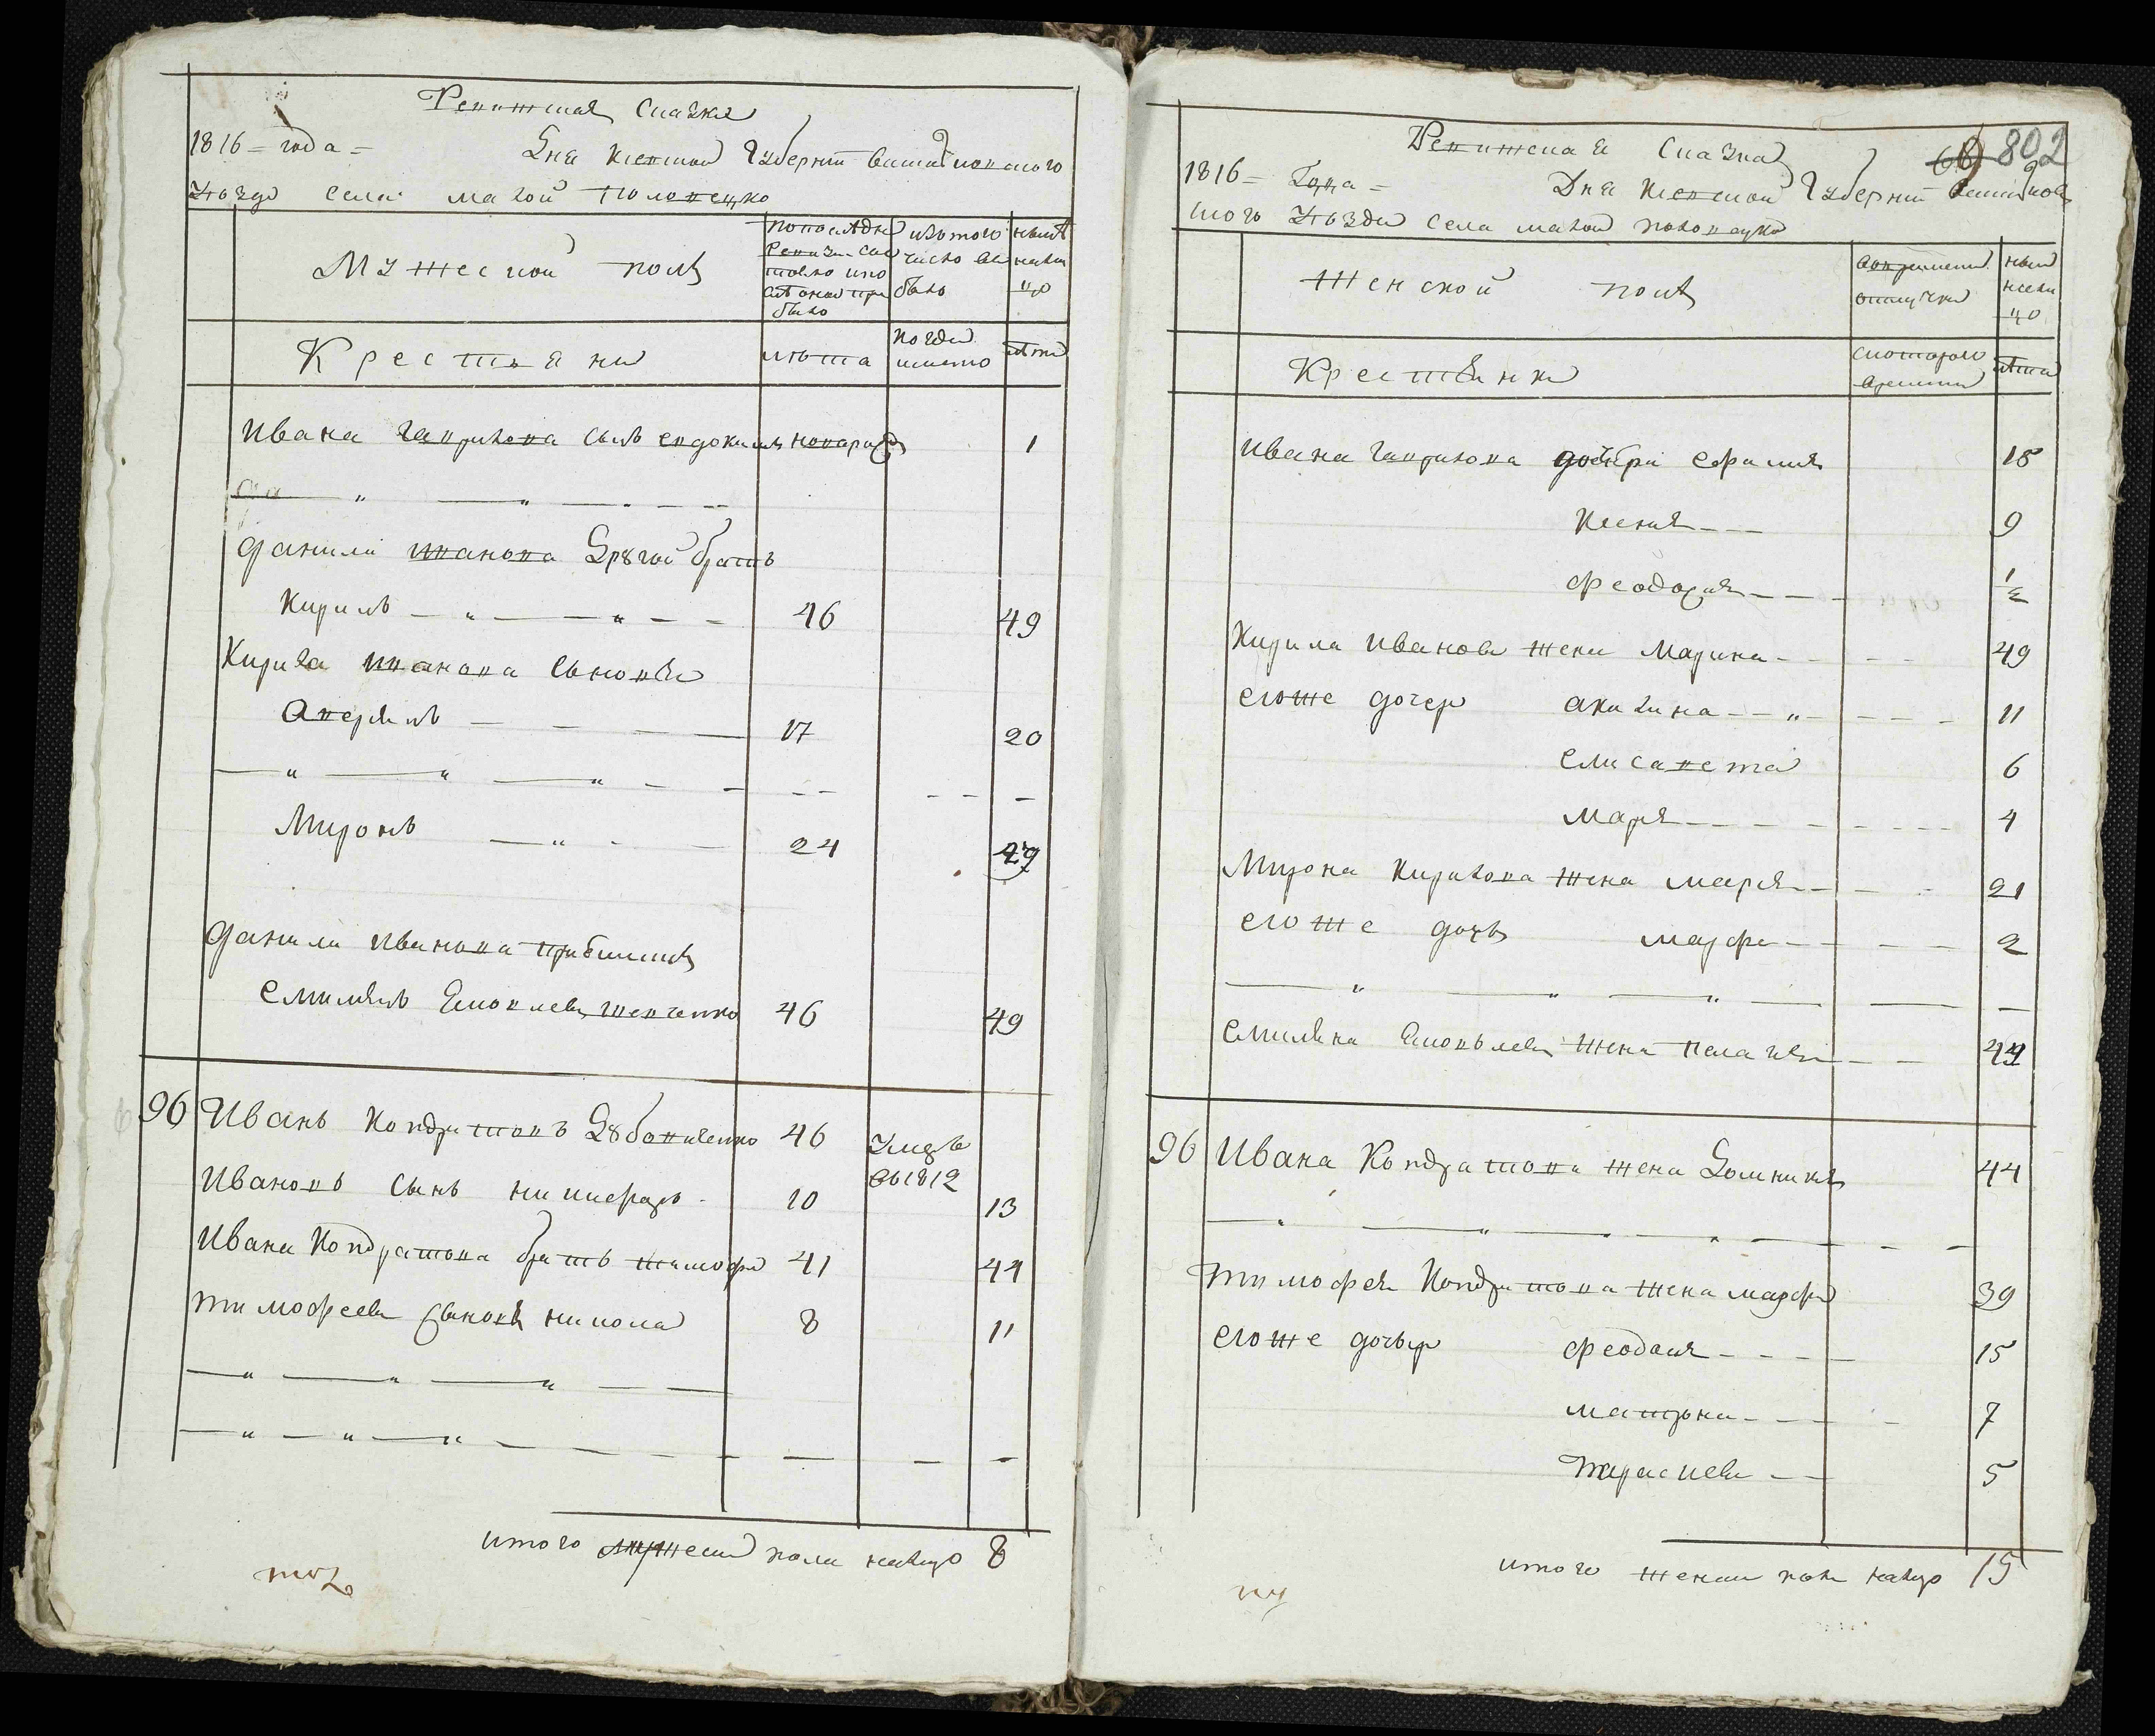 Ревижская Сказка
1816 = года = Дня Киевской Губернии Васильковского
уѣзда села малой Половецко
Мужеской полъ
по последн ревизи состояло и после оной прибыло
изъ того число выбыло
нынѣ налицо
Крестьяни
лѣта
когда имянно
лѣта
Ивана гаврилова сынъ евдокимъ новорожд 1
Данила иванова Другой братъ
Кирилъ 46 49
Кирила иванова сыновья
Аверянъ 17 20
Миронъ 24 27
Данила иванова
Емилянъ Яковлевъ шевченко 46 49
96 Иванъ Кондратовъ Дубовиченко 46 умре въ 1812
Ивановъ сынъ никифоръ 10 13
Ивана Кондратова братъ тимофе 41 44
тимофеева сыновя никола 8 11
итого мужеска пола налицо 8
Ревижская Сказка
802
1816 = Года = Дня Киевской Губернии Василков
ского уѣзда села малой половецко
Женской полъ
во временной отлучки
ныне налицо
Крестянки
с котораго времени
лѣта
Ивана гаврилова дочери ефимия 18
Ксения 9
феодосия 1/2
Кирила Иванова жена Марина 49
егоже дочер акилина 11
елисавета 6
маря 4
Мирона кирилова жена маря 21
егоже дочь марфа 2
емиляна Яковлева жена пелагия 44
96 Ивана Кондратова жена Домникия 44
тимофея Кондратова жена марфа 39
егоже дочьер феодосия 15
матрона 7
параскева 5
итого женска пола налицо 15